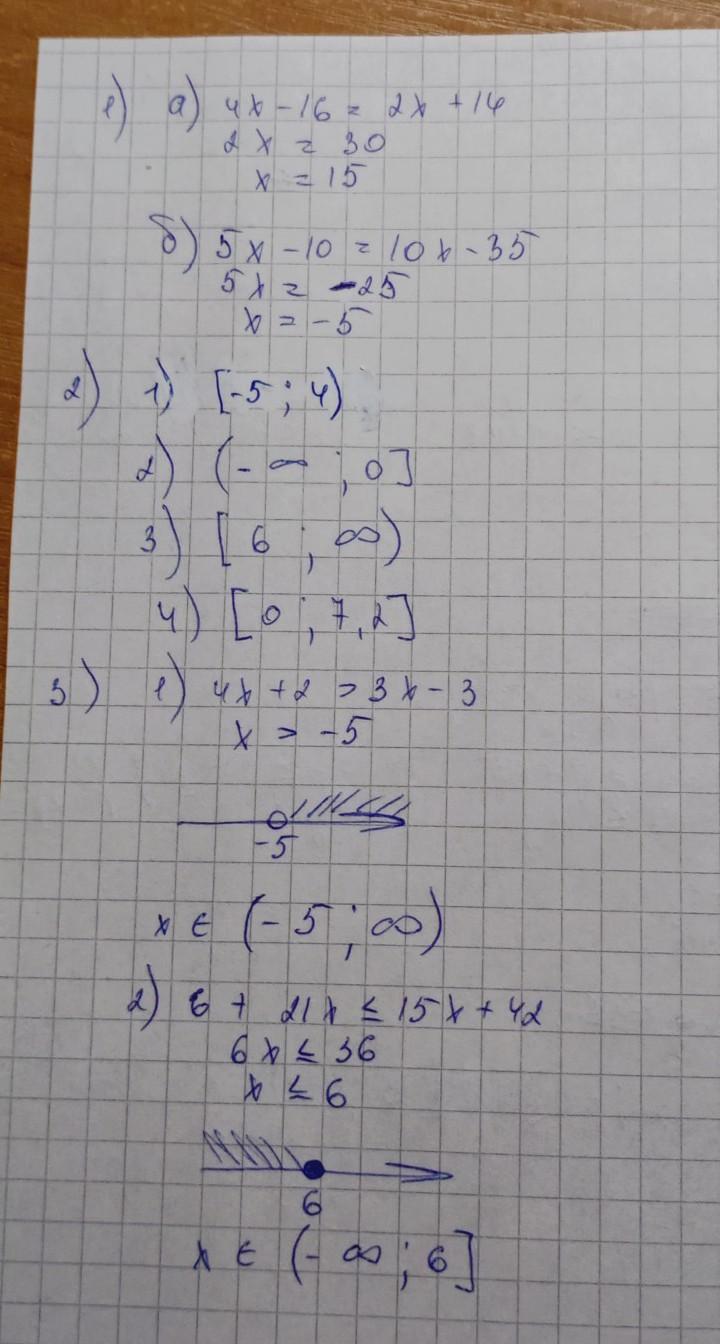 1) а) 4x - 16 = 2x + 14
2x = 30
x = 15
б) 5x - 10 = 10x - 35
5x = -25
x = -5
2) 1) [-5; 4)
2) (-∞; 0]
3) [6; ∞)
4) [0; 7,2]
3) 1) 4x + 2 > 3x - 3
x > -5
-5
x ∈ (-5; ∞)
2) 6 + 21x ≤ 15x + 42
6x ≤ 36
x ≤ 6
6
x ∈ (-∞; 6]